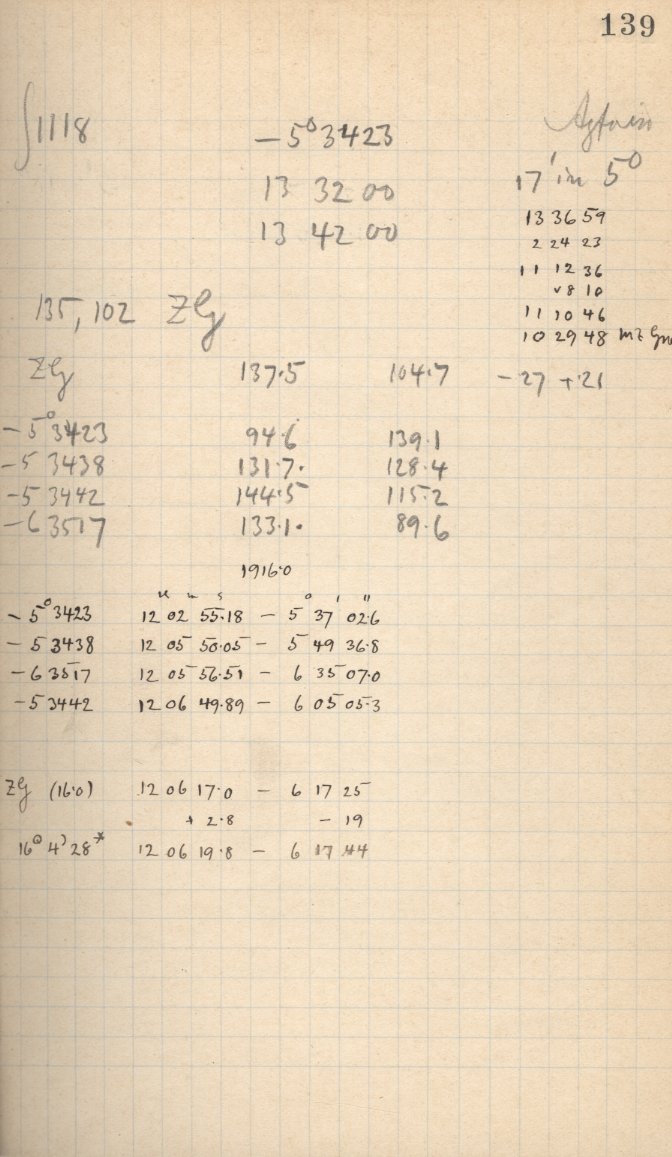 139
∫1118
-5° 3423
13 32 00
13 42 00
17' in 5°
13 36 59
2 24 23
11 12 36
8 10
11 10 46
10 29 48
135, 102 ZG
ZG 137.5 104.7 -27 +21
-5° 3423 94.6 139.1
-5 3438 131.7. 128.4
-5 3442 144.5 115.2
-6 3517 133.1. 89.6
1916.0
H m s ° ' "
-5° 3423 12 02 55.18 - 5 37 02.6
-5 3438 12 05 50.05 - 5 49 36.8
-6 3517 12 05 56.51 - 6 35 07.0
-5 3442 12 06 49.89 - 6 05 05.3
ZG (16.0) 12 06 17.0 - 6 17 25
+ 2.8 - 19
12 06 19.8 - 6 17 44